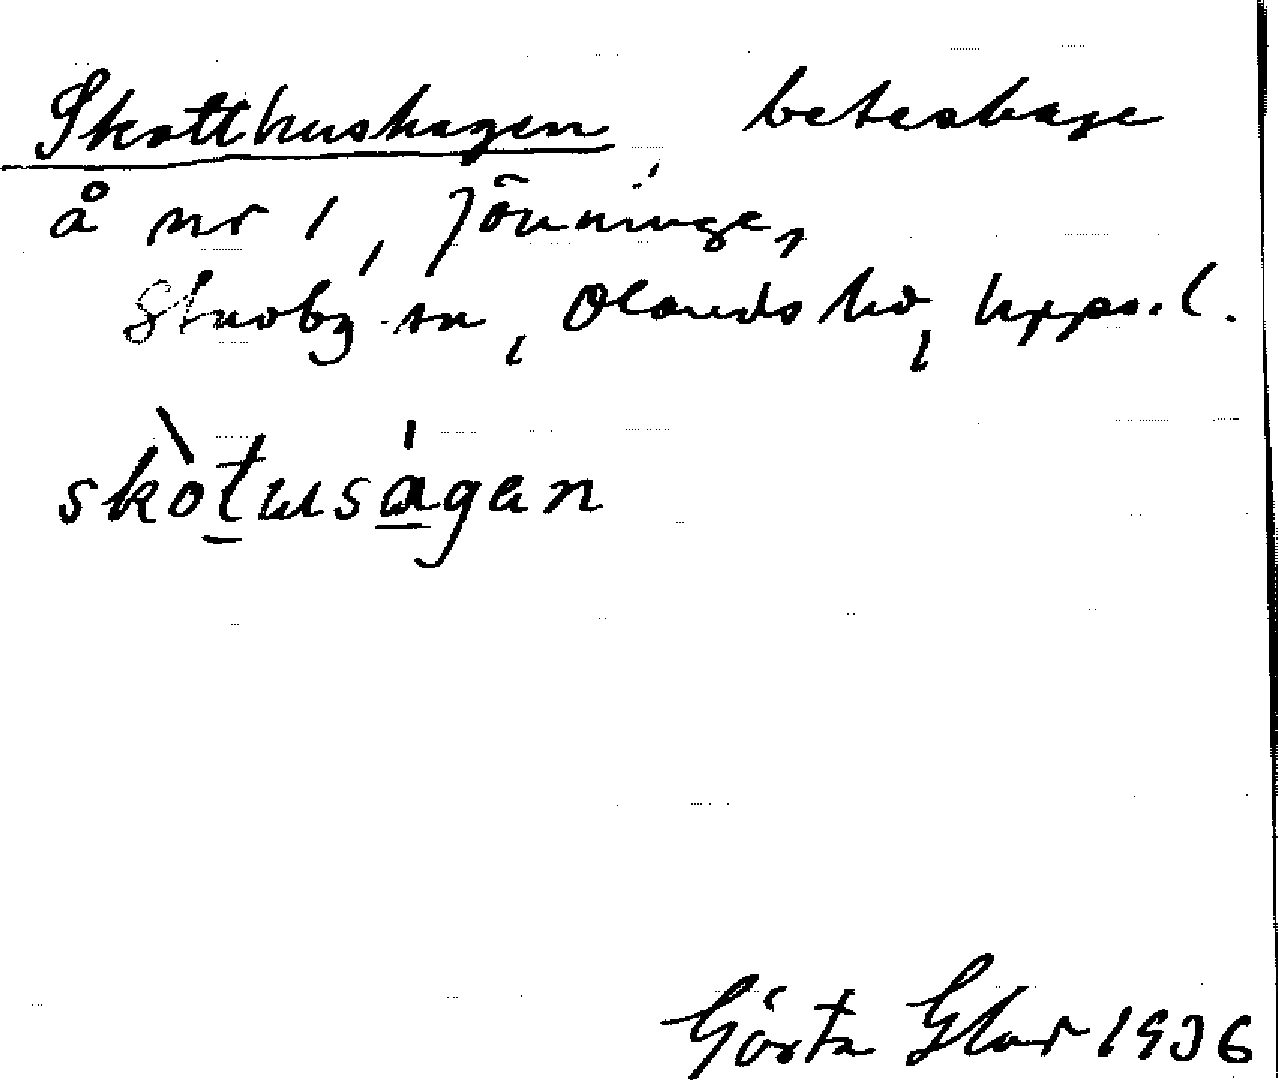 Skotthushagen beteshage
å nr 1, Jönninge,
Stuvby sn, Olands hd, Upps. l.
skòtuságan
Gösta Glar 1936